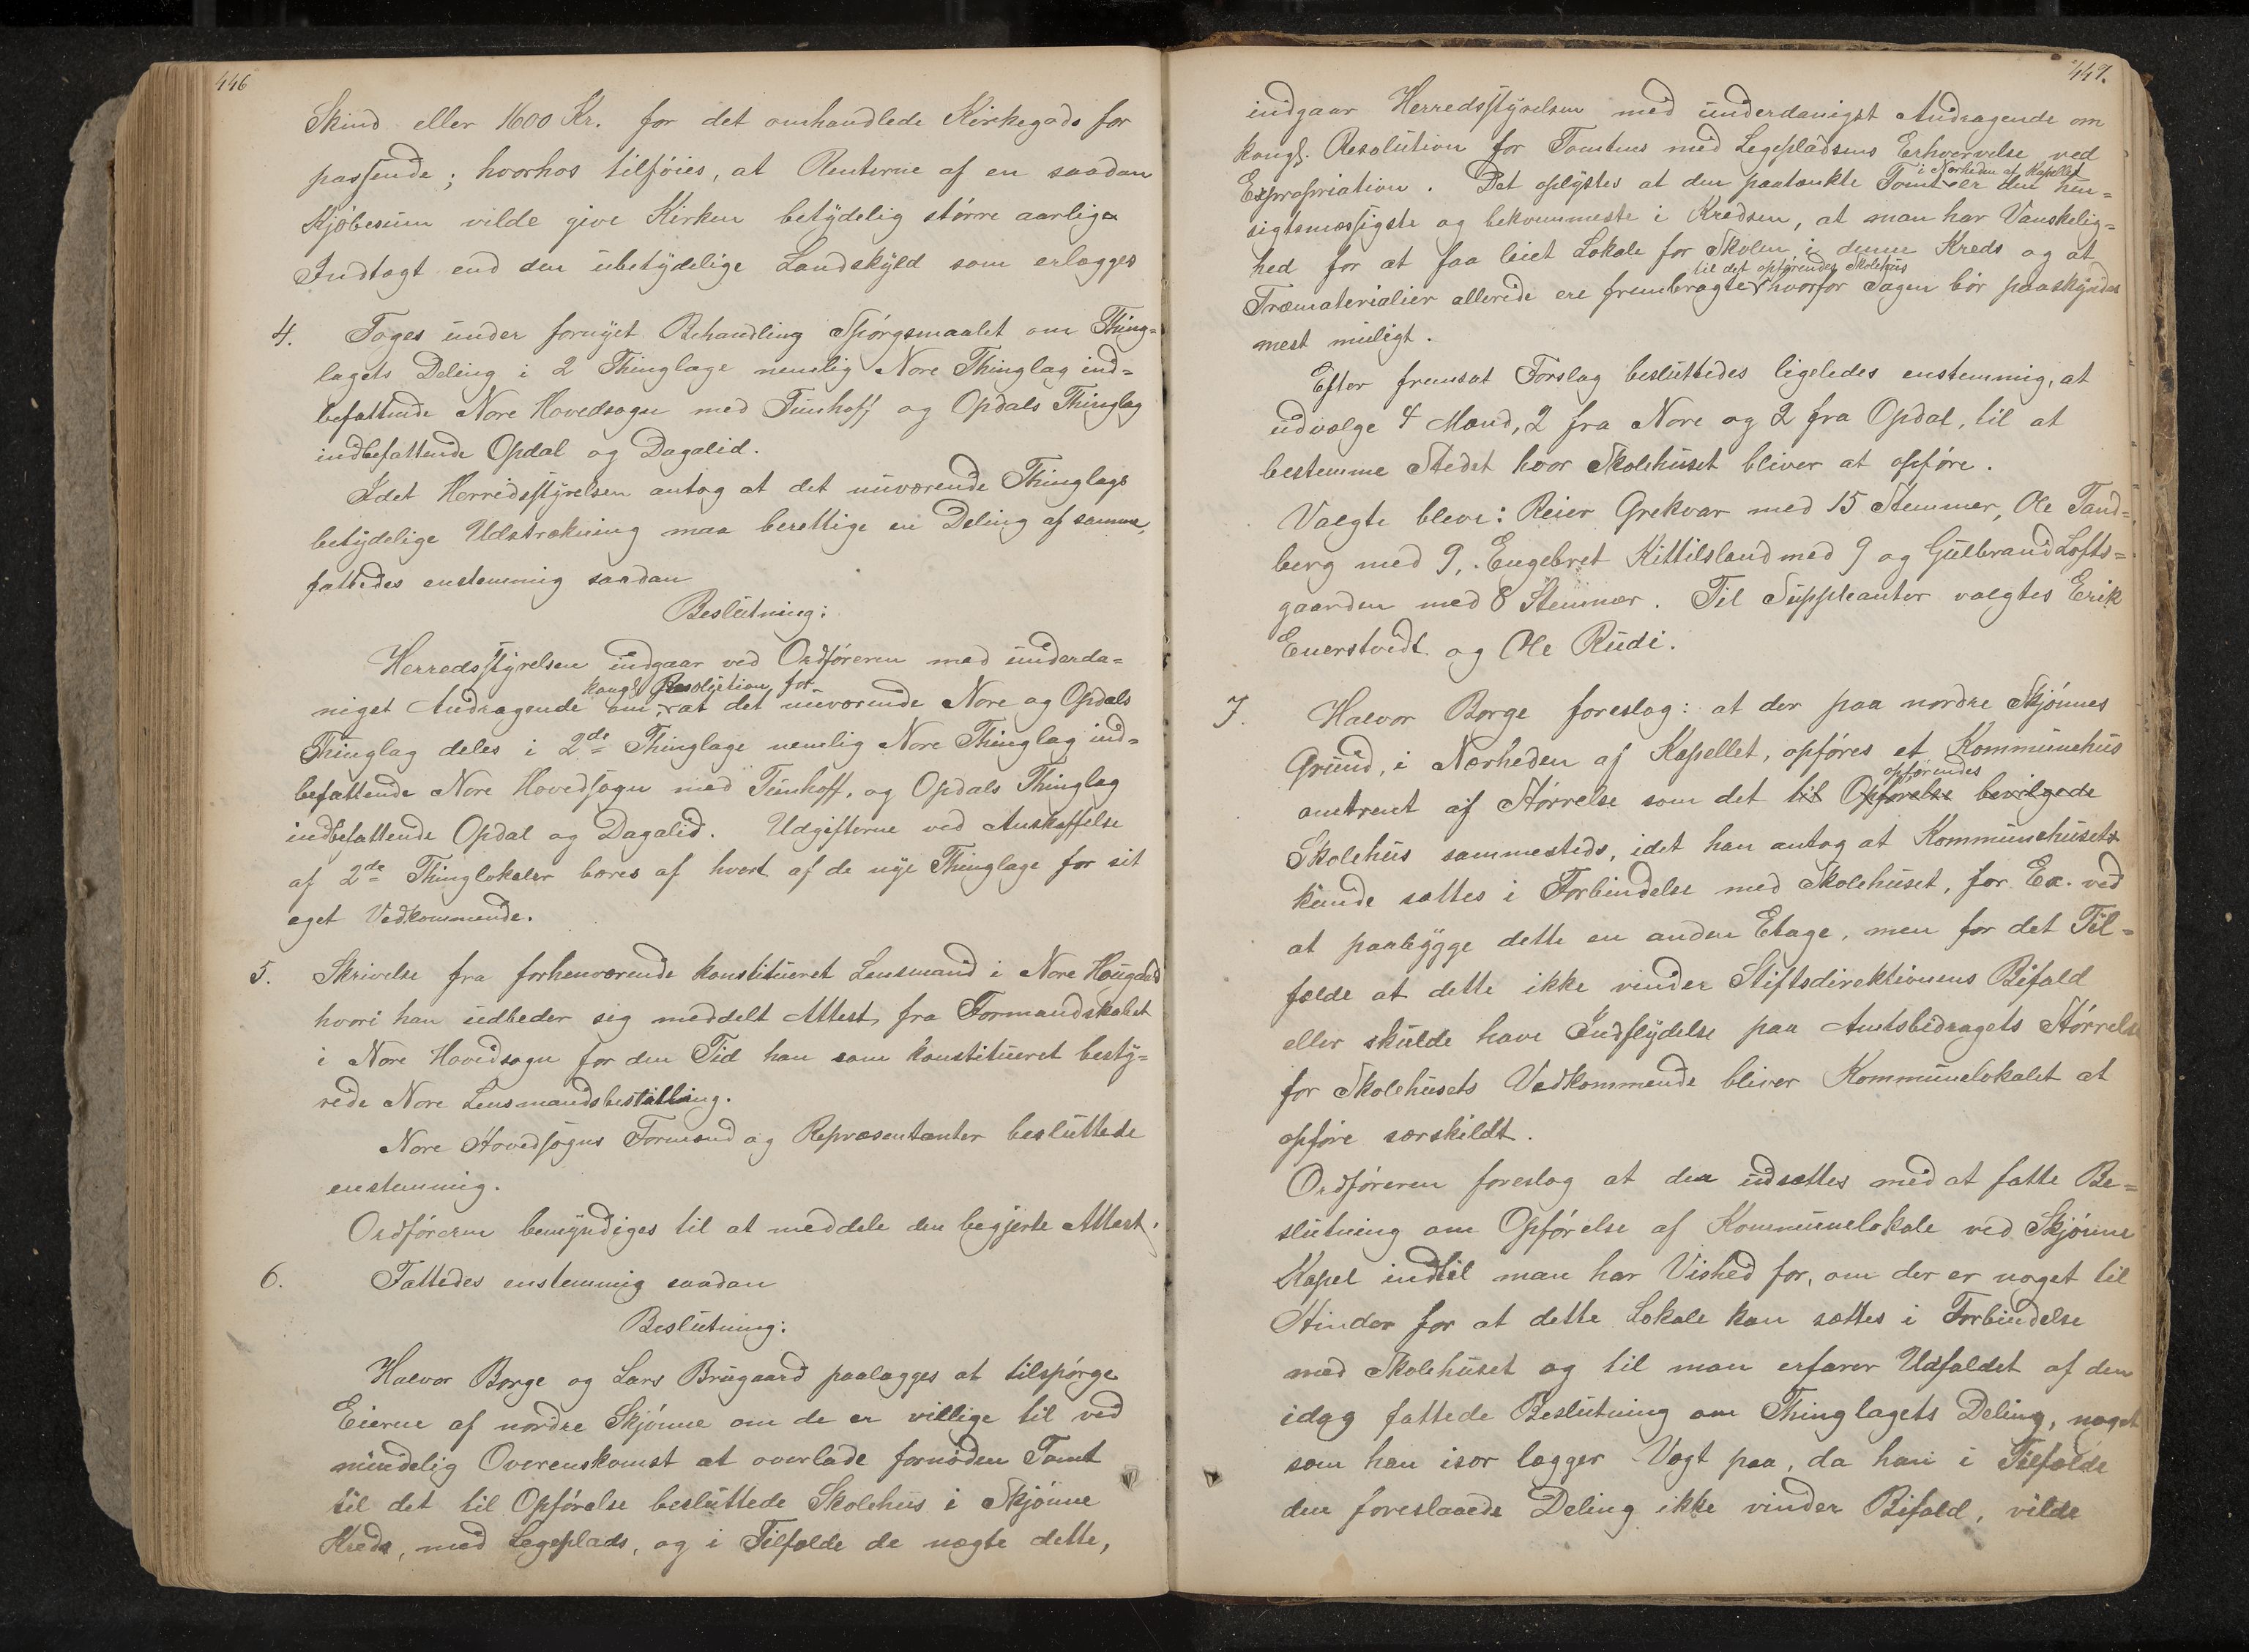 446
Skind eller 1600 Kr. for det omhandlede Kirkegods for
passende; hvorhos tilføies, at Renterne af en saadan
Kjøbesum vilde give Kirken betydelig større aarlige
Indtægt end den ubetydelige Landskyld som erlægges
4. Toges under fornyet Behandling Spørgsmaalet om Thing=
lagets Deling i 2 Thinglage nemlig Nore Thinglag ind=
befattende Nore Hovedsogn med Tunhoff og Opdals Thinglag
indbefattende Opdal og Dagalid.
Idet Herredsstyrelsen antog at det nuværende Thinglags
betydelige Udstrækning maa berettige en Deling af samme,
fattedes enstemmig saadan
Beslutning:
Herredsstyrelsen indgaar ved Ordføreren med underda=
kongl. Resolution for
nigst Andragende om at det nuværende Nore og Opdals
Thinglag deles i 2de Thinglage nemlig Nore Thinglag ind=
befattende Nore Hovedsogn med Tunhoff, og Opdals Thinglag
indbefattende Opdal og Dagalid. Udgifterne ved Anskaffelse
af 2de Thinglokaler bæres af hvert af de nye Thinglage for sit
eget Vedkommende.
5. Skrivelse fra forhenværende konstitueret Lensmand i Nore Hougaard
hvori han udbeder sig meddelt Attest fra Formandskabet
i Nore Hovedsogn for den Tid han som konstitueret besty=
rede Nore Lensmandsbestilling.
Nore Hovedsogns Formænd og Repræsentanter besluttede
enstemmig.
Ordføreren bemyndiges til at meddele den begjerte Attest.
6. Fattedes enstemmig saadan
Beslutning:
Halvor Borge og Lars Brugaard paalægges at tilspørge
Eierne af nordre Skjønne om de er villige til ved
mindelig Overenskomst at overlade fornøden Tomt
til det til Opførelse besluttede Skolehus i Skjønne
Kreds, med Legeplads, og i Tilfælde de nægte dette,
447.
indgaar Herredsstyrelsen med underdanigst Andragende om
kongl. Resolution for Tomtens med Legepladsens Erhvervelse ved
i Nærheden af Kapellet
Expropriation. Det oplystes at den paatænkte Tomt er den hen=
sigtsmæssigste og bekvemmeste i Kredsen, at man har Vanskelig=
hed for at faa leiet Lokale for Skolen i denne Kreds og at
til det opførendes Skolehus
Træmaterialier allerede ere frembragte hvorfor Sagen bør paaskyndes
mest muligt.
Efter fremsat Forslag besluttedes ligeledes enstemmig, at
udvælge 4 Mænd, 2 fra Nore og 2 fra Opdal, til at
bestemme Stedet hvor Skolehuset bliver at opføre.
Valgte bleve: Reier Grekvar med 15 Stemmer, Ole Tand=
berg med 9, Engebret Kittilsland med 9 og Gulbrand Lofts=
gaarden med 8 Stemmer. Til Suppleanter valgtes Erik
Enerstvedt og Ole Rudi.
7. Halvor Borge foreslog: at der paa nordre Skjønnes
Grund, i Nærheden af Kapellet, opføres et Kommunehus
opførendes
omtrent af Størrelse som det til Opførelse bevilgede
Skolehus sammesteds, idet han antog at Kommunehuset
kunde sættes i Forbindelse med Skolehuset, for Ex. ved
at paabygge dette en anden Etage, men for det Til=
fælde at dette ikke vinder Stiftsdirektionens Bifald
eller skulde have Indflydelse paa Amtsbidragets Størrelse
for Skolehusets Vedkommende bliver Kommunelokalet at
opføre særskildt.
Ordføreren foreslog at der udsættes med at fatte Be=
slutning om Opførelse af Kommunelokale ved Skjønne
Kapel indtil man har Vished for, om der er noget til
Hinder for at dette Lokale kan sættes i Forbindelse
med Skolehuset og til man erfarer Udfaldet af den
idag fattede Beslutning om Thinglagets Deling, noget
som han især lægger Vægt paa, da han i Tilfælde
den foreslaaede Deling ikke vinder Bifald, vilde